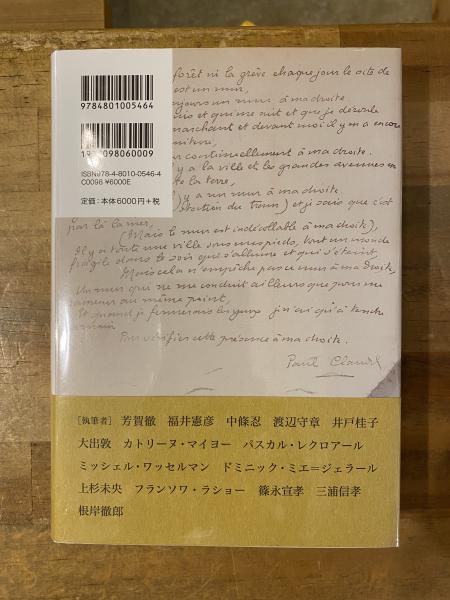 forêt ni la grève chaque jour le site de
est un mur,
toujours un mur à ma droite
et qui me suit et que je déroule
marchant et devant moi il y en a encore
continuellement à ma droite.
y a la ville et les grandes avenues en
la terre,
y a un mur à ma droite.
et je sais que c'est
par là la mer,
(Mais le mur est indécollable à ma droite),
Il y a toute une ville sous mes pieds, tout un monde
fragile dans le soir que s'allume et qui s'éteint,
Mais cela n'empêche pas ce mur à ma droite,
Un mur qui ne me conduit ailleurs que pour me
ramener au même point,
Et quand je fermerais les yeux j'n'ai qu'à tendre
la main
Pour vérifier cette présence à ma droite.
Paul Claudel
9784801005464
098060009
ISBN978-4-8010-0546-4
C0098 ¥6000E
定価:本体6000円+税
[執筆者] 芳賀徹 福井憲彦 中條忍 渡辺守章 井戸桂子
大出敦 カトリーヌ・マイヨー パスカル・レクロアール
ミッシェル・ワッセルマン ドミニック・ミエ=ジェラール
上杉未央 フランソワ・ラショー 篠永宣孝 三浦信孝
根岸徹郎